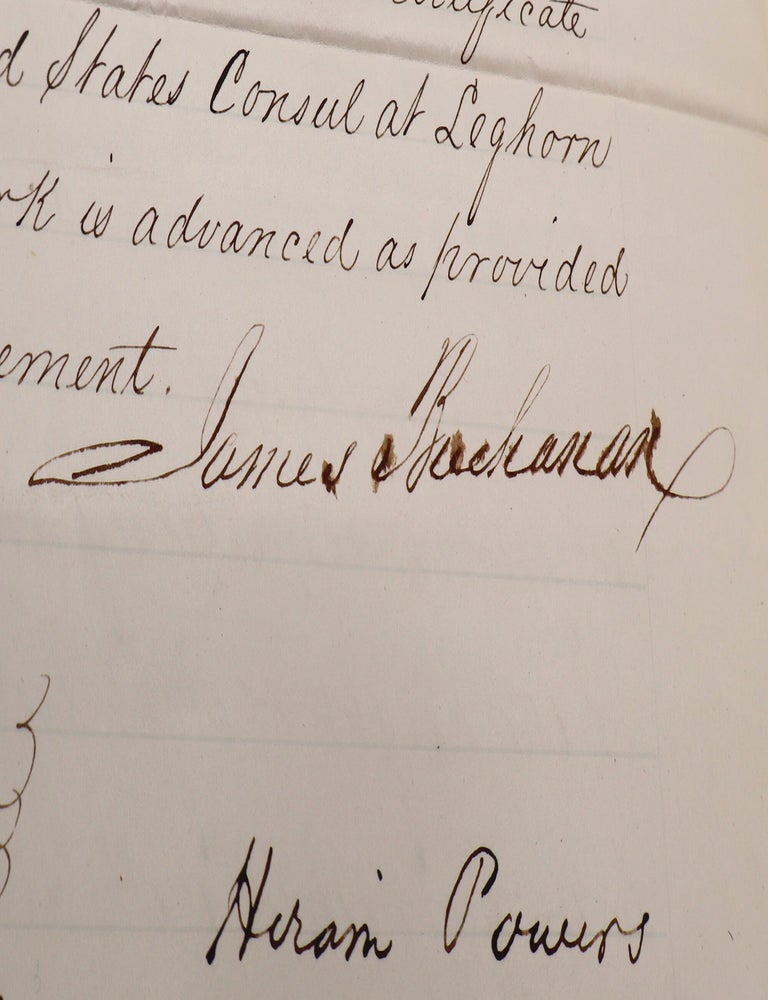 certificate
d States Consul at Leghorn
rk is advanced as provided
ement.
James Buchanan
Hiram Powers